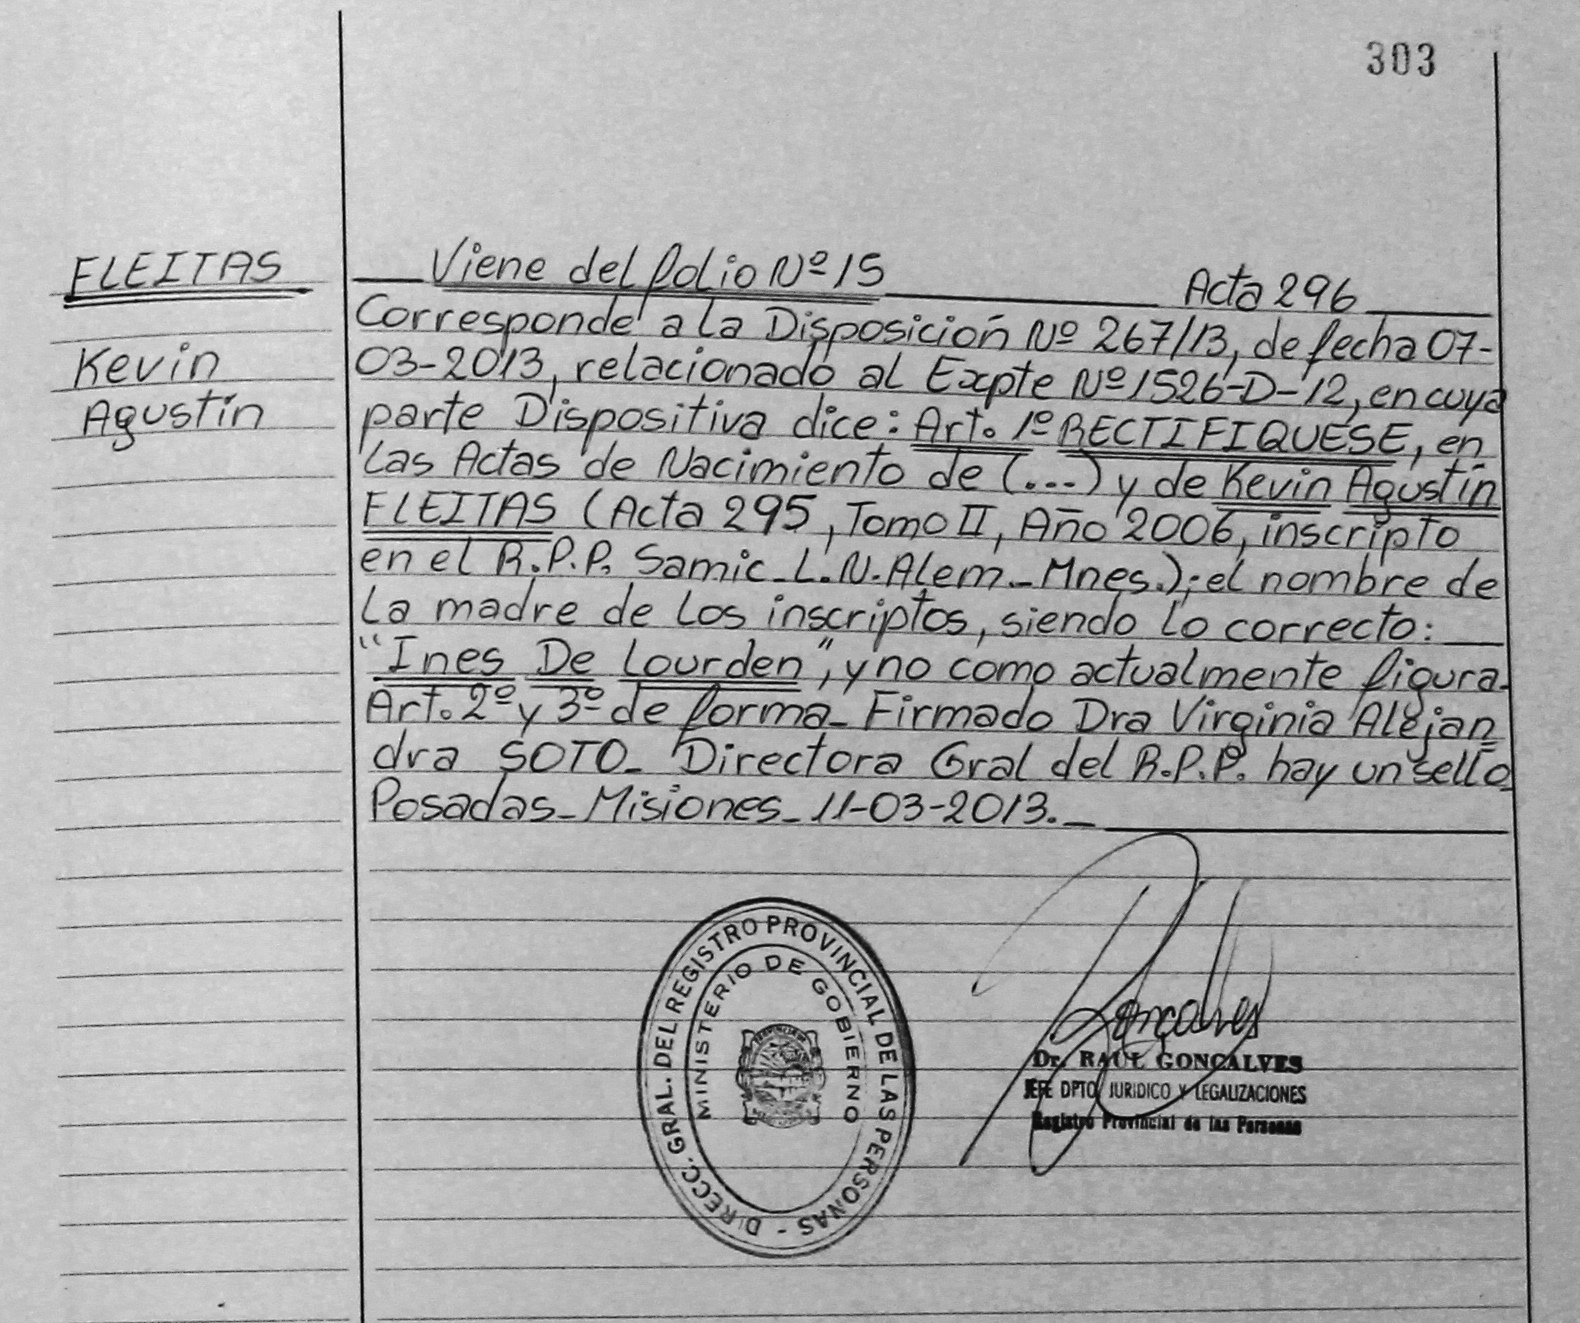 303
FLEITAS
Kevin
Agustín
Viene del folio Nº 15 Acta 296
Corresponde a la Disposición Nº 267/13, de fecha 07-
03-2013, relacionado al Expte Nº 1526-D-12, en cuya
parte Dispositiva dice: Art. 1º RECTIFIQUESE, en
las Actas de Nacimiento de (...) y de Kevin Agustín
FLEITAS (Acta 295, Tomo II, Año 2006, inscripto
en el R.P.P. Samic_L.N.Alem_Mnes.); el nombre de
la madre de los inscriptos, siendo lo correcto:
"Ines De Lourden", y no como actualmente figura_
Art. 2º y 3º de forma_ Firmado Dra Virginia Alejan
dra SOTO_ Directora Gral del R.P.P. hay un sello
Posadas_Misiones_11-03-2013._
DIRECC. GRAL. DEL REGISTRO PROVINCIAL DE LAS PERSONAS -
MINISTERIO DE GOBIERNO
Gonçalves
Dr. RAUL GONÇALVES
JEFE DPTO JURIDICO Y LEGALIZACIONES
Registro Provincial de las Personas